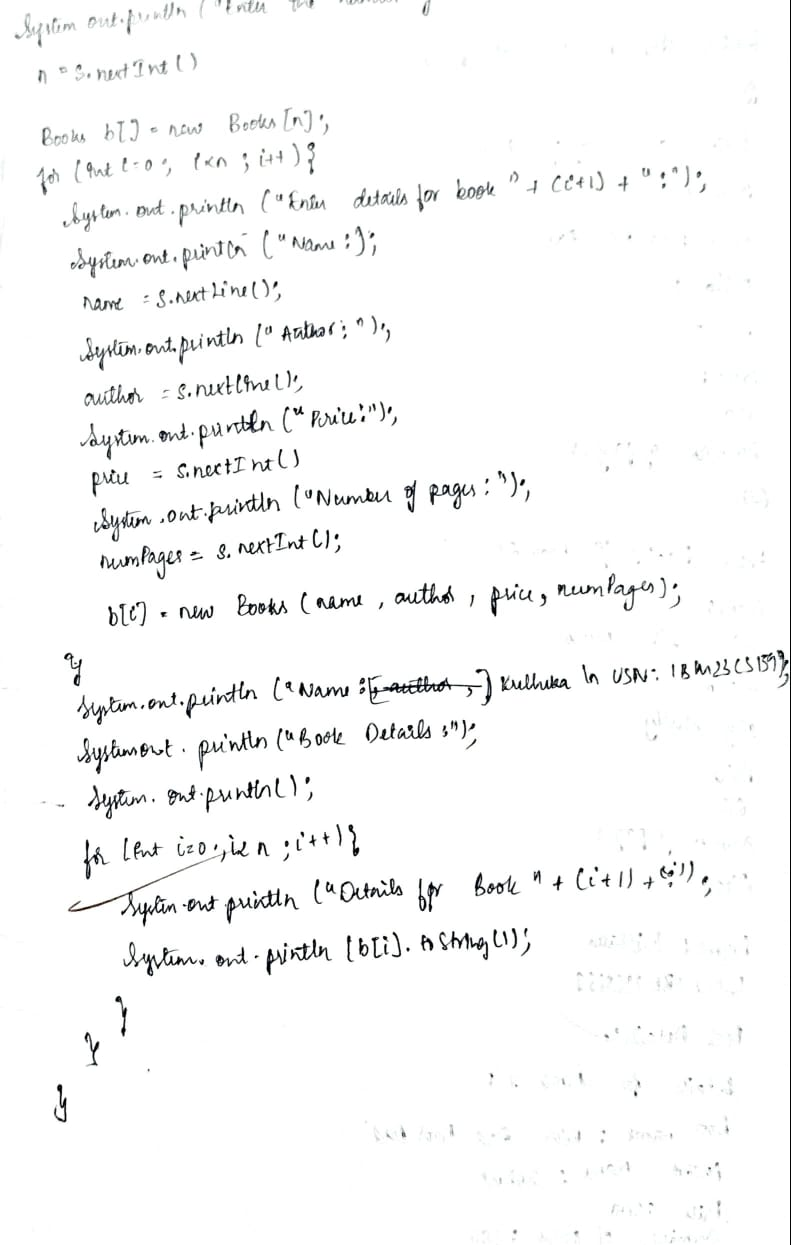 System out.println ("Enter the
n = S.nextInt()
Books b[] = new Books [n];
for (int i=0; i<n ; i++){
System.out.println ("Enter details for book " + (i+1) + ":");
System.out.println ("Name :);
name = S.nextLine();
System.out.println (" Author: ");
author = S.nextLine();
System.out.println (" Price:");
price = S.nextInt()
System.out.println ("Number of pages : ");
numPages = S.nextInt();
b[i] = new Books (name , author , price, numPages);
}
System.out.println ("Name : In USN: 1BM23CS159);
System out. println ("Book Details :");
System. out.println();
for (int i=0; i< n ; i++){
System out println ("Details for Book " + (i+1) + ":");
System. out.println (b[i]. toString());
}
}
}